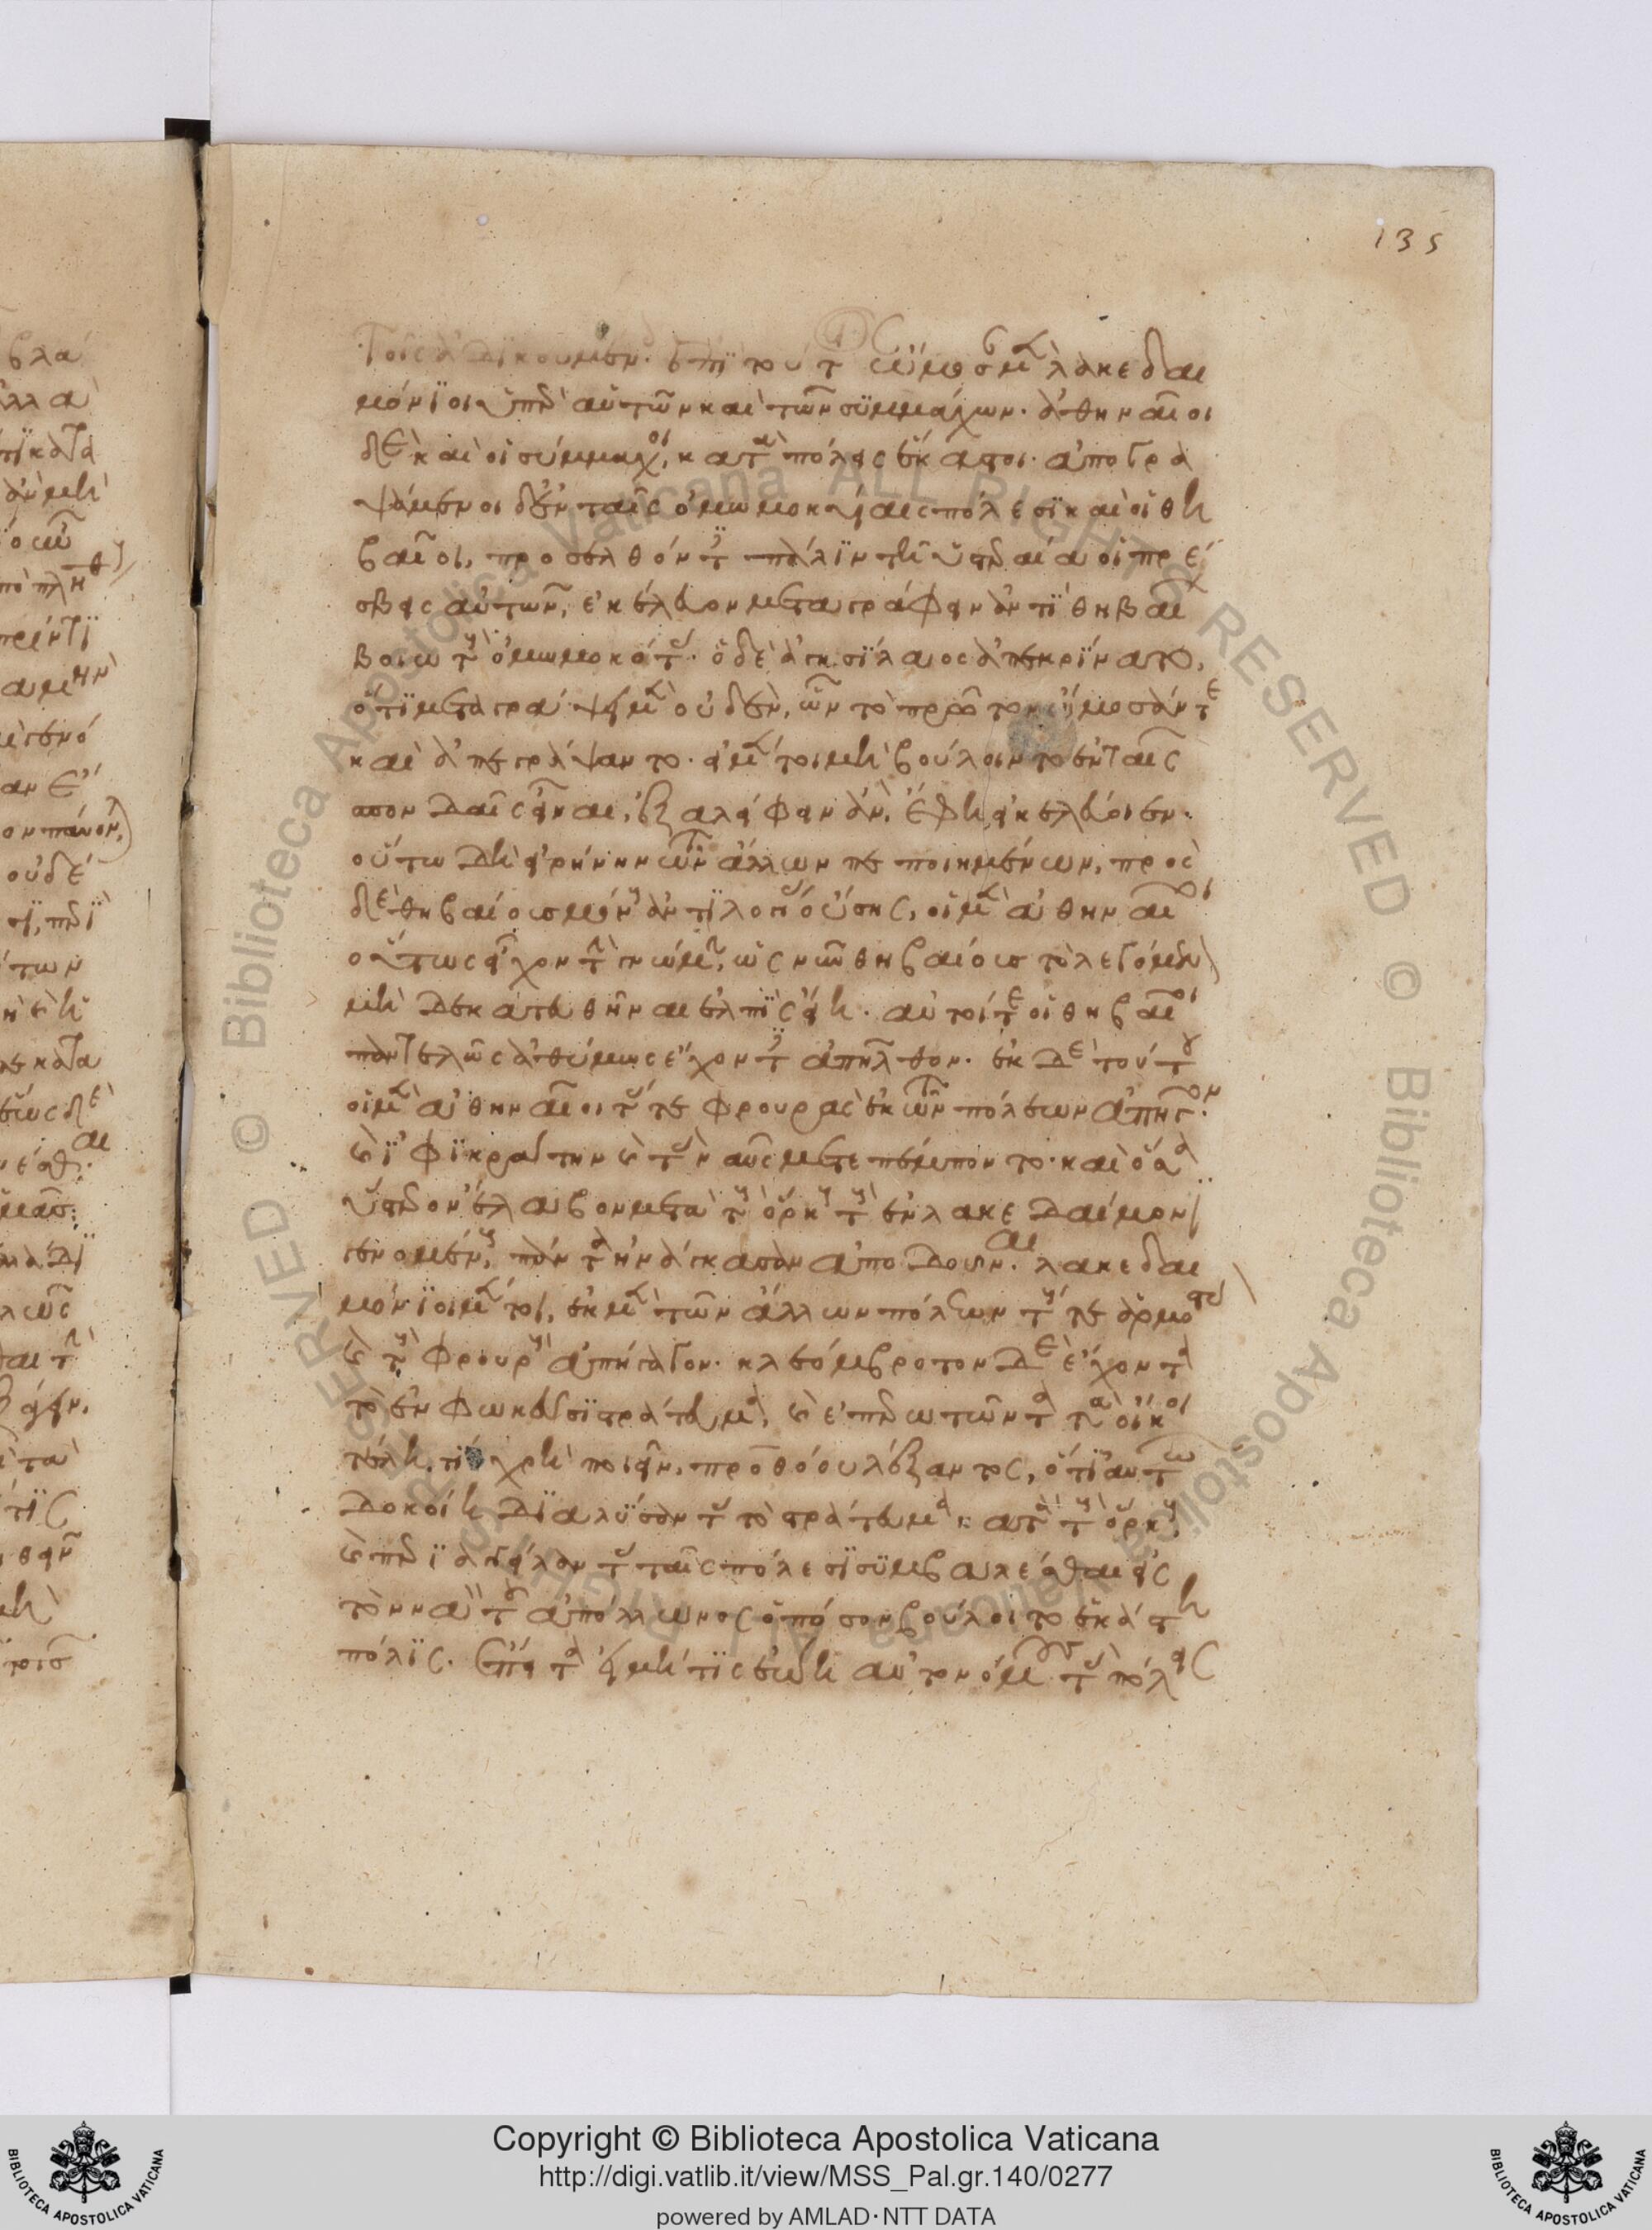 τοῖς ἀδικουμέν. ἐπὶ τούτοις ὤμοσαν μὲν λακεδαι
μόνιοι ὑπὲρ αὐτῶν καὶ τῶν συμμάχων. ἀθηναῖοι
δὲ καὶ οἱ σύμμαχοι, κατὰ πόλεις ἕκαστοι. ἀπογρα
ψάμενοι δ' ἐν ταῖς ὀμωμοκυίαις πόλεσι καὶ οἱ θη
βαῖοι, προσελθόντες πάλιν τῆ ὑστεραία οἱ πρέ
σβεις αὐτῶν, ἐκέλευον μεταγράφειν ἀντὶ θηβαίων
βοιωτοὺς ὀμωμοκότας. ὁ δὲ ἀγησίλαος ἀπεκρίνατο,
ὅτι μεταγράψει μὲν οὐδὲν, ὧν τὸ πρῶτον ὤμοσάν τε
καὶ ἀπεγράψαντο. εἰ μέντοι μὴ βούλοιντο ἐν ταῖς
σπονδαῖς εἶναι, ἐξαλείφειν ἂν, ἔφη, εἰ κελεύοιεν.
οὕτω δὴ εἰρήνην τῶν ἄλλων πεποιημένων, πρὸς
δὲ θηβαίους μόνους ἀντιλογίας οὔσης, οἱ μὲν ἀθηναῖοι
οὕτως εἶχον τὴν γνώμην, ὡς νῦν θηβαίους τὸ λεγόμενον
μὴ δεκατευθῆναι ἐλπὶς εἴη. αὐτοί τε οἱ θηβαῖοι
παντελῶς ἀθύμως ἔχοντες ἀπῆλθον. ἐκ δὲ τούτου
οἱ μὲν ἀθηναῖοι τάς τε φρουρὰς ἐκ τῶν πόλεων ἀπῆγον.
καὶ ἰφικράτην καὶ τὰς ναῦς μετεπέμποντο. καὶ ὅσα
ὕστερον ἔλαβον μετὰ τοὺς ὅρκους τοὺς ἐν λακεδαίμονι
γενομένους, πάντα ἠνάγκασαν ἀποδοῦναι. λακεδαι
μόνιοι μέντοι, ἐκ μὲν τῶν ἄλλων πόλεων τούς τε ἁρμοστὰς
καὶ τοὺς φρουροὺς ἀπήγαγον. κλεόμβροτον δὲ ἔχοντα
τὸ ἐν φωκεῦσι στράτευμα, καὶ ἐπερωτῶντα τὰ οἴκοι
τέλη, τί χρὴ ποιεῖν, προθόου λέξαντος, ὅτι αὐτῶ
δοκοίη διαλύσαντας τὸ στράτευμα κατὰ τοὺς ὅρκους,
καὶ περιαγγείλαντας ταῖς πόλεσι συμβαλέσθαι εἰς
τὸν ναὸν τοῦ ἀπόλλωνος ὁπόσον βούλοιτο ἑκάστη
πόλις. ἔπειτα εἰ μή τις ἐώη αὐτονόμους τὰς πόλεις
135
Copyright © Biblioteca Apostolica Vaticana
http://digi.vatlib.it/view/MSS_Pal.gr.140/0277
powered by AMLAD·NTT DATA